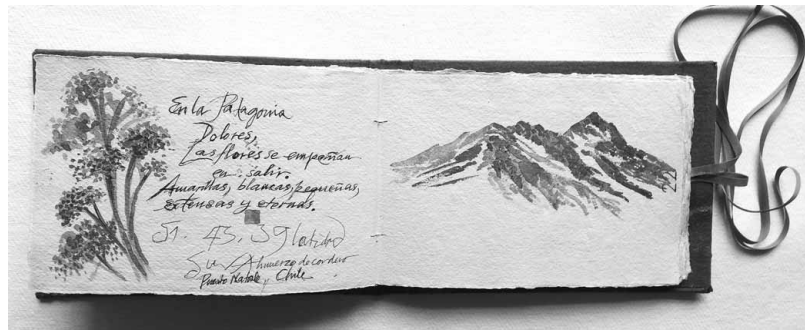 En la Patagonia
Dolores,
Las flores se empeñan
en salir.
Amarillas, blancas, pequeñas,
extensas y eternas.
51. 43. 39 latitud
Sur Almuerzo de cordero
Puerto Natales, Chile